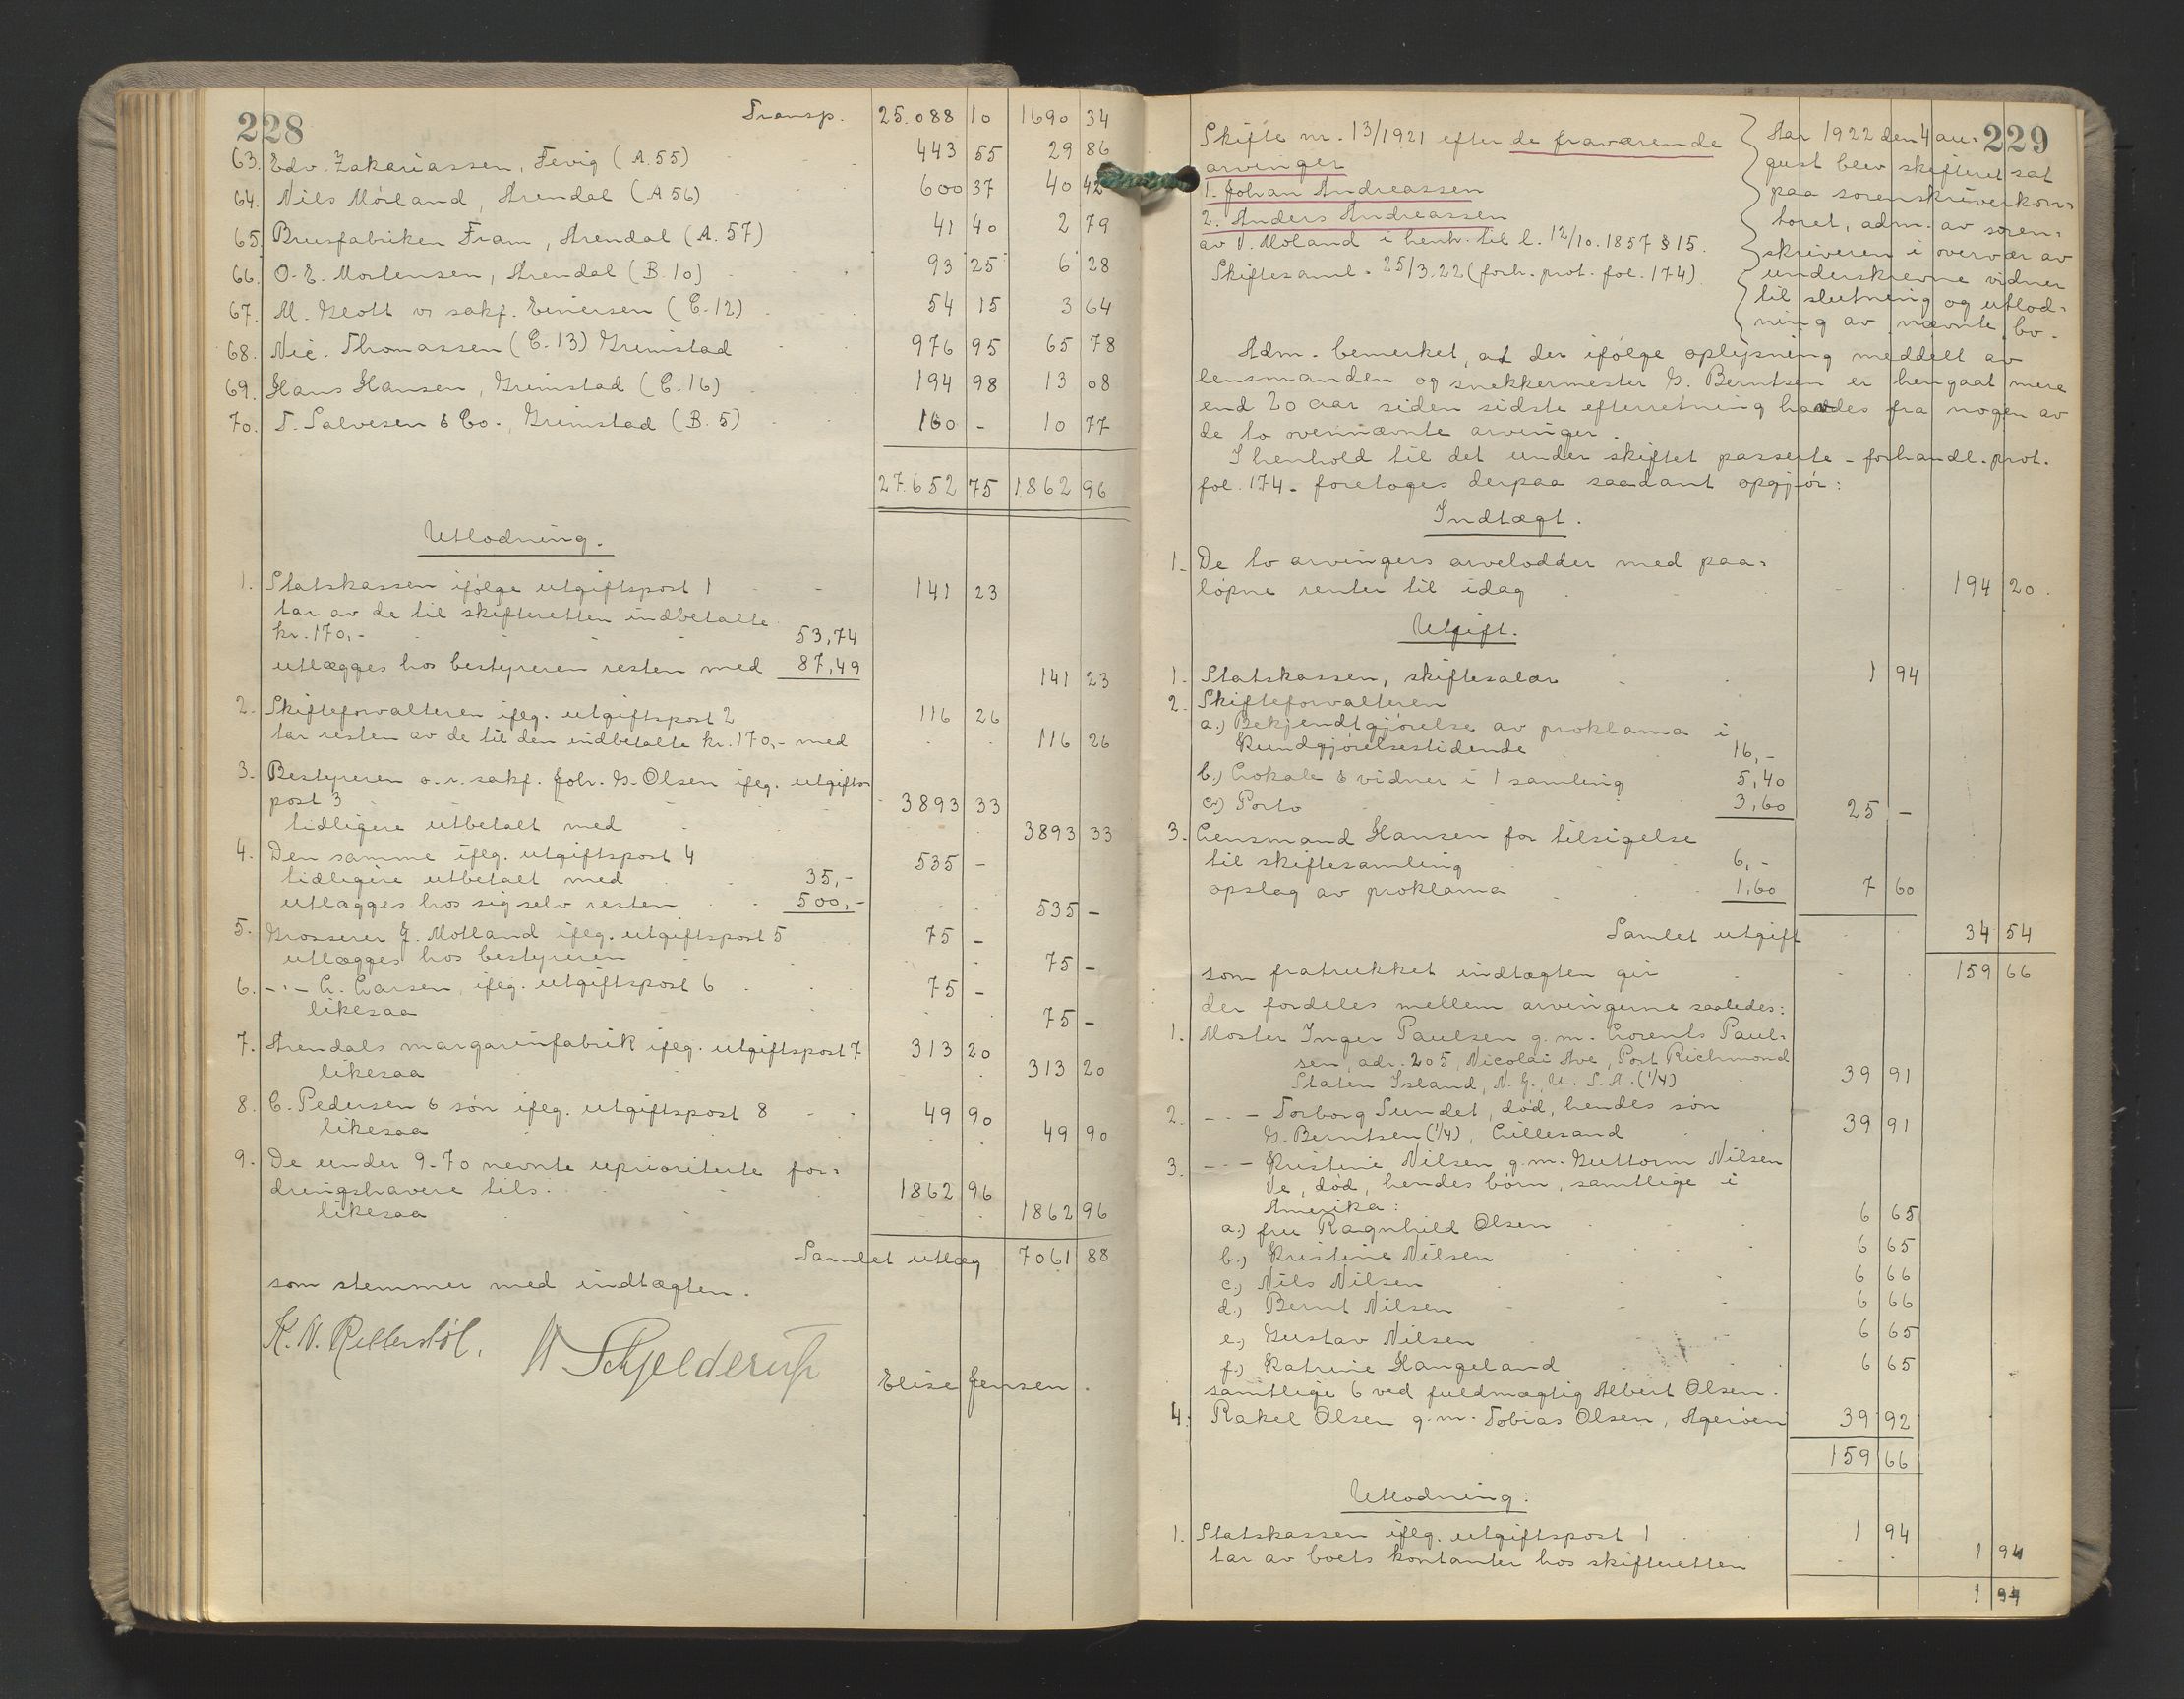 228
Transp. 25.088 10 1690 34
63. Edv. Zakariassen, Fevig (A.55) 443 55 29 86
64. Nils Mörland, Arendal (A 56) 600 37 40 42
65. Brusfabriken Fram, Arendal (A. 57) 41 40 2 79
66. O. E. Mortensen, Arendal (B. 10) 93 25 6 28
67. M. Glott v/ sakf. Evensen (C. 12) 54 15 3 64
68. Nic. Thomassen (C. 13) Grimstad 976 95 65 78
69. Hans Hansen, Grimstad (C. 16) 194 98 13 08
70. T. Salvesen & Co., Grimstad (B. 5) 160 - 10 77
27.652 75 1862 96
Utlodning.
1. Statskassen ifölge utgiftspost 1 141 23
tar av de til skifteretten indbetalte
kr. 170,- 53,74
utlægges hos bestyreren resten med 87,49 141 23
2. Skifteforvalteren iflg. utgiftspost 2 116 26
tar resten av de til den indbetalte kr. 170,- med 116 26
3. Bestyreren o.r. sakf. Joh. G. Olsen iflg. utgifts-
post 3 3893 33
tidligere utbetalt med 3893 33
4. Den samme iflg. utgiftspost 4 535 -
tidligere utbetalt med 35,-
utlægges hos sig selv resten 500,- 535 -
5. Grosserer J. Molland iflg. utgiftspost 5 75 -
utlægges hos bestyreren 75 -
6. -"- A. Larsen, iflg. utgiftspost 6 75 -
likesaa 75 -
7. Arendals margarinfabrik iflg. utgiftspost 7 313 20
likesaa 313 20
8. C. Pedersen & sön iflg. utgiftspost 8 49 90
likesaa 49 90
9. De under 9-70 nevnte uprioriterte for-
dringshavere tils. 1862 96
likesaa 1862 96
Samlet utlæg 7061 88
som stemmer med indtægten.
K. N. Rellerstöl. Schjelderup
Elise Jensen.
229
Skifte nr. 13/1921 efter de fraværende
arvinger
1. Johan Andreassen
2. Anders Andreassen
av V. Moland i henh. til l. 12/10. 1857 § 15.
Skiftesaml. 25/3.22 (forh. prot. fol. 174)
Aar 1922 den 4 au-
gust blev skifteret sat
paa sorenskriverkon-
toret, adm. av soren-
skriveren i overvær av
underskrevne vidner
til slutning og utlod-
ning av nævnte bo.
Adm. bemerket, at der ifölge oplysning meddelt av
lensmanden og snekkermester G. Berntsen er hengaat mere
end 20 aar siden sidste efterretning havdes fra nogen av
de to ovennævnte arvinger.
I henhold til det under skiftet passerte - forhandl. prot.
fol. 174 - foretoges derpaa saadant opgjör:
Indtægt.
1. De to arvingers arvelodder med paa-
löpne renter til idag 194 20.
Utgift.
1. Statskassen, skiftesalær 1 94
2. Skifteforvalteren
a.) Bekjendtgjörelse av proklama i
Kundgjörelsestidende 16,-
b.) Lokale & vidner i 1 samling 5,40
c.) Porto 3,60 25 -
3. Lensmand Hansen for tilsigelse
til skiftesamling 6,-
opslag av proklama 1,60 7 60
Samlet utgift 34 54
som fratrukket indtægten gir 159 66
der fordeles mellem arvingerne saaledes:
1. Moster Inger Paulsen g.m. Lorents Paul-
sen, adr. 205, Nicolai Ave, Port Richmond
Staten Island, N.J., U.S.A. (1/4) 39 91
2. -"- Torborg Sundet, död, hendes sön
G. Berntsen (1/4), Lillesand 39 91
3. -"- Kristine Nilsen g.m. Guttorm Nilsen
Ve, död, hendes börn, samtlige i
Amerika:
a.) fru Ragnhild Olsen 6 65
b.) Kristine Nilsen 6 65
c.) Nils Nilsen 6 66
d.) Bernt Nilsen 6 66
e.) Gustav Nilsen 6 65
f.) Katrine Haugeland 6 65
samtlige 6 ved fuldmægtig Albert Olsen.
4. Rakel Olsen g.m. Tobias Olsen, Ageröen 39 92
159 66
Utlodning:
1. Statskassen iflg. utgiftspost 1 1 94
tar av boets kontanter hos skifteretten 1 94
1 94